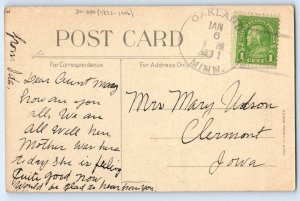 POST CARD
For Correspondence
OAKLAND
JAN
6
1931
MINN.
1 CENT 1
from Ida
Dear Aunt Mary
how are you
all. We are
all well here
Mother was here
to day she is feeling
Quite good now
Would be glad to hear from you.
Mrs Mary Udson
Clermont
Iowa